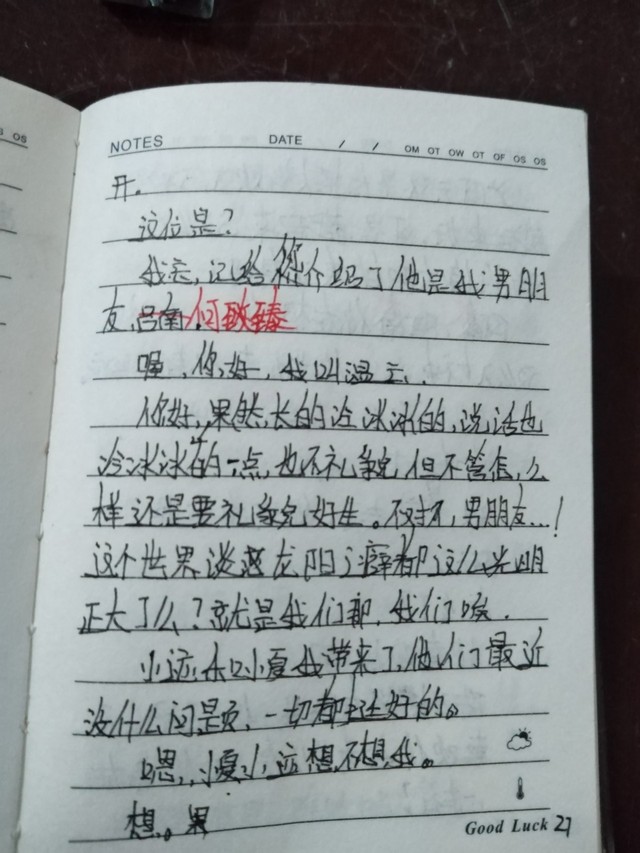 OS
NOTES DATE / / OM OT OW OT OF OS OS
开。
这位是?
我去,忘给您介绍了他是我男朋
友,吕南,何致臻
喔,你好,我叫温云.
你好,果然,长的冷冰冰的,说话也
冷冰冰的一点,也不礼貌,但不管怎么
样还是要礼貌好生。不对不,男朋友...!
这个世界谈龙阳之癖都这么光明
正大了么?就是我们那,我们唉.
小远和小夏我带来了,他们最近
没什么问题,一切都挺好的。
嗯,小夏小远想不想我。
想。果
Good Luck 27